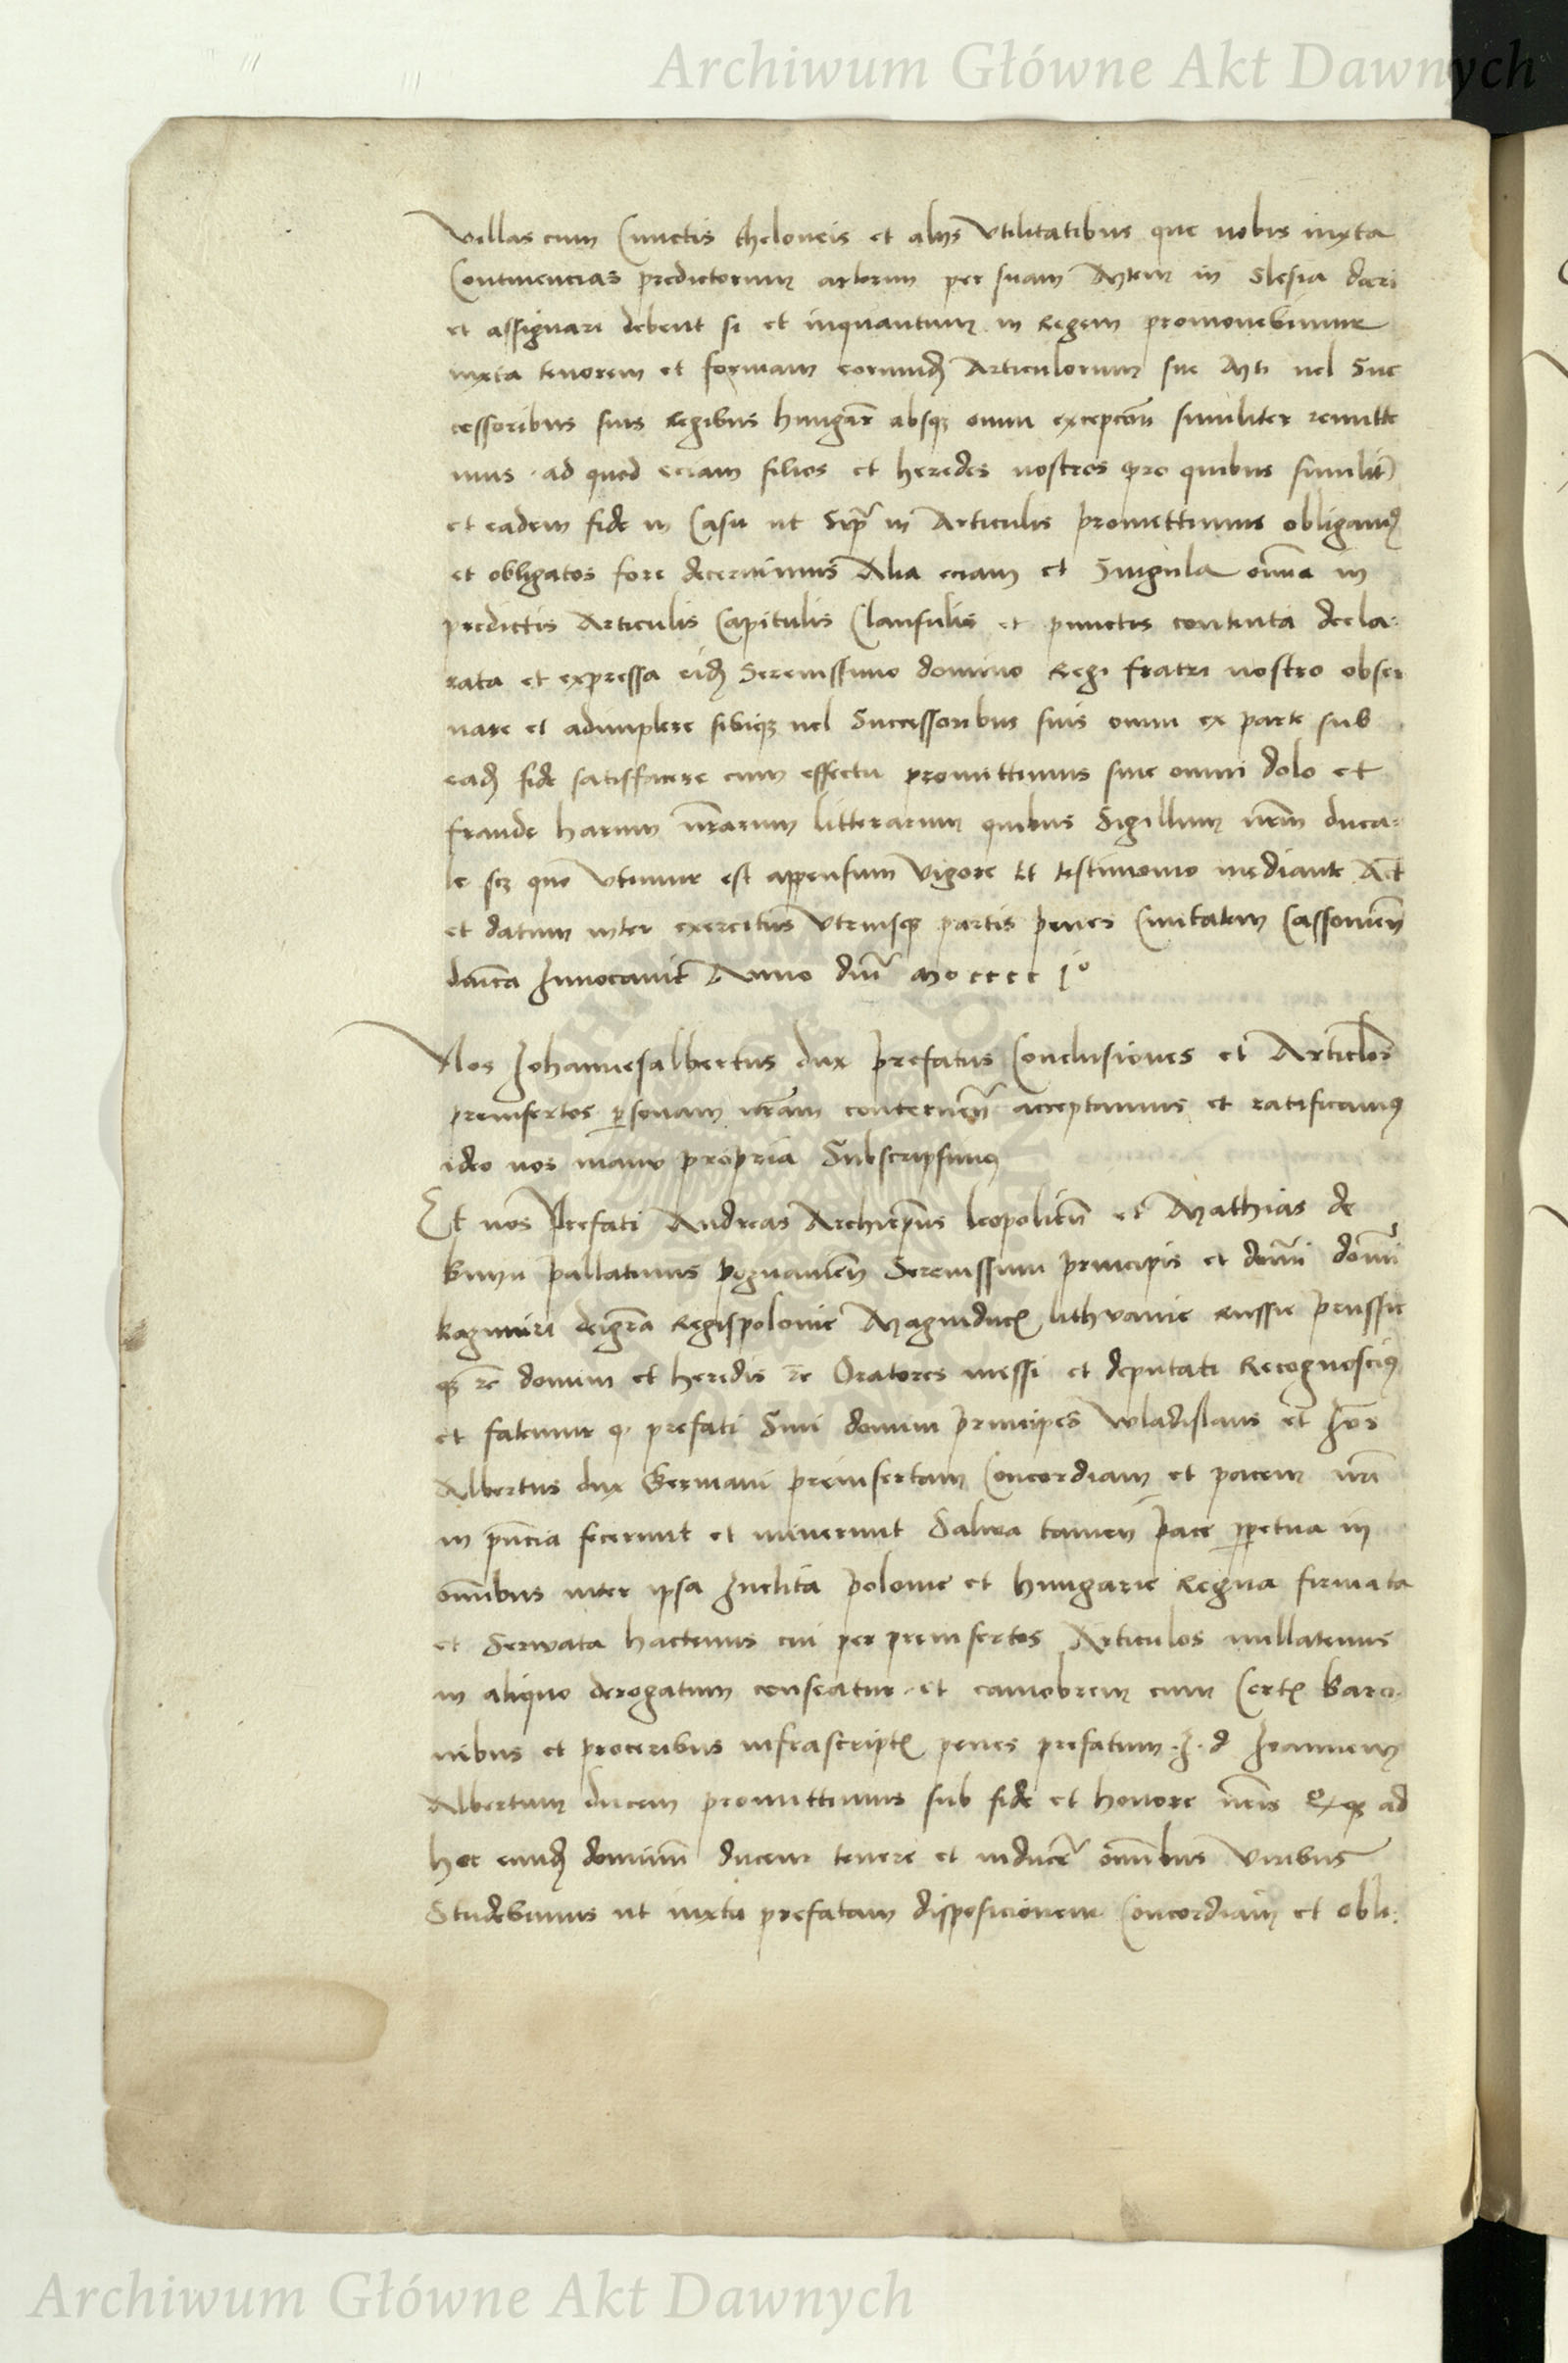 Archiwum Główne Akt Dawnych
villas cum Cunctis theloneis et aliis Vtilitatibus que nobis iuxta
Continencias predictorum artorum per suam Mtem in Slesia dari
et assignari debent si et inquantum in Regem promouebimur
iuxta tenorem et formam eorumd Articulorum sue Mti uel Suc
cessoribus suis Regibus hungar absq omni excepcon similiter remitte
mus ad quod eciam filios et heredes nostros pro quibus similit
et eadem fide in Casu ut Supr in Articulis promittimus obligam
et obligatos fore decernimus Alia eciam et Singula omnia in
predictis Articulis Capitulis Clausulis et punctis contenta decla:
rata et expressa eid Serenissimo domino Regi fratri nostro obser
uare et adimplere sibiq uel Successoribus suis omni ex parte sub
ead fide satisfacere cum effectu promittimus sine omni dolo et
fraude harum nrarum litterarum quibus Sigillum nrm duca:
le sc quo Vtimur est appensum Vigore Et testimonio mediante Act
et datum inter exercitus Vtriusq partis penes Ciuitatem Cassouien
dnica Inuocauit Anno dni mo cccc i°
Nos Johannesalbertus dux prefatus Conclusiones et Articlos
preinsertos personam nram concernen acceptamus et ratificamus
ideo nos manu propria Subscripsimus
Et nos Prefati Andreas Archiepus leopolien et Mathias de
bnyn pallatinus poznanien Serenissimi principis et domni domni
kazimiri deigra Regispolonie Magniducis lithvanie Russie prussie
q rc domini et heredis rc Oratores missi et deputati Recognoscim
et fatemur q prefati Smi domini principes Wladislaus et Jos
Albertus dux Germani preinsertam Concordiam et pacem nra
in pncia fecerunt et iniuerunt Salua tamen pace perpetua in
omnibus inter ipsa Inclita polonie et hungarie Regna firmata
et Seruata hactenus cui per preinsertos Articulos nullatenus
in aliquo derogatum censeatur et eamobrem cum Certis baro
nibus et proceribus infrascriptis penes prefatum J d Joannem
Albertum ducem promittimus sub fide et honore nris ad
hoc eund dominum ducem tenere et inducere omnibus Viribus
Studebimus ut iuxta prefatam disposicionem Concordiam et obli:
Archiwum Główne Akt Dawnych